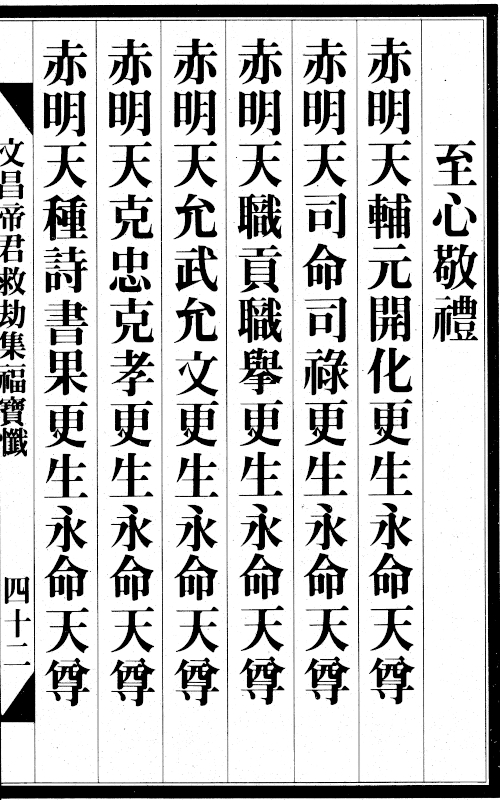 至心敬禮
赤明天輔元開化更生永命天尊
赤明天司命司祿更生永命天尊
赤明天職貢職舉更生永命天尊
赤明天允武允文更生永命天尊
赤明天克忠克孝更生永命天尊
赤明天種詩書果更生永命天尊
文昌帝君救劫集福寶懺
四十二